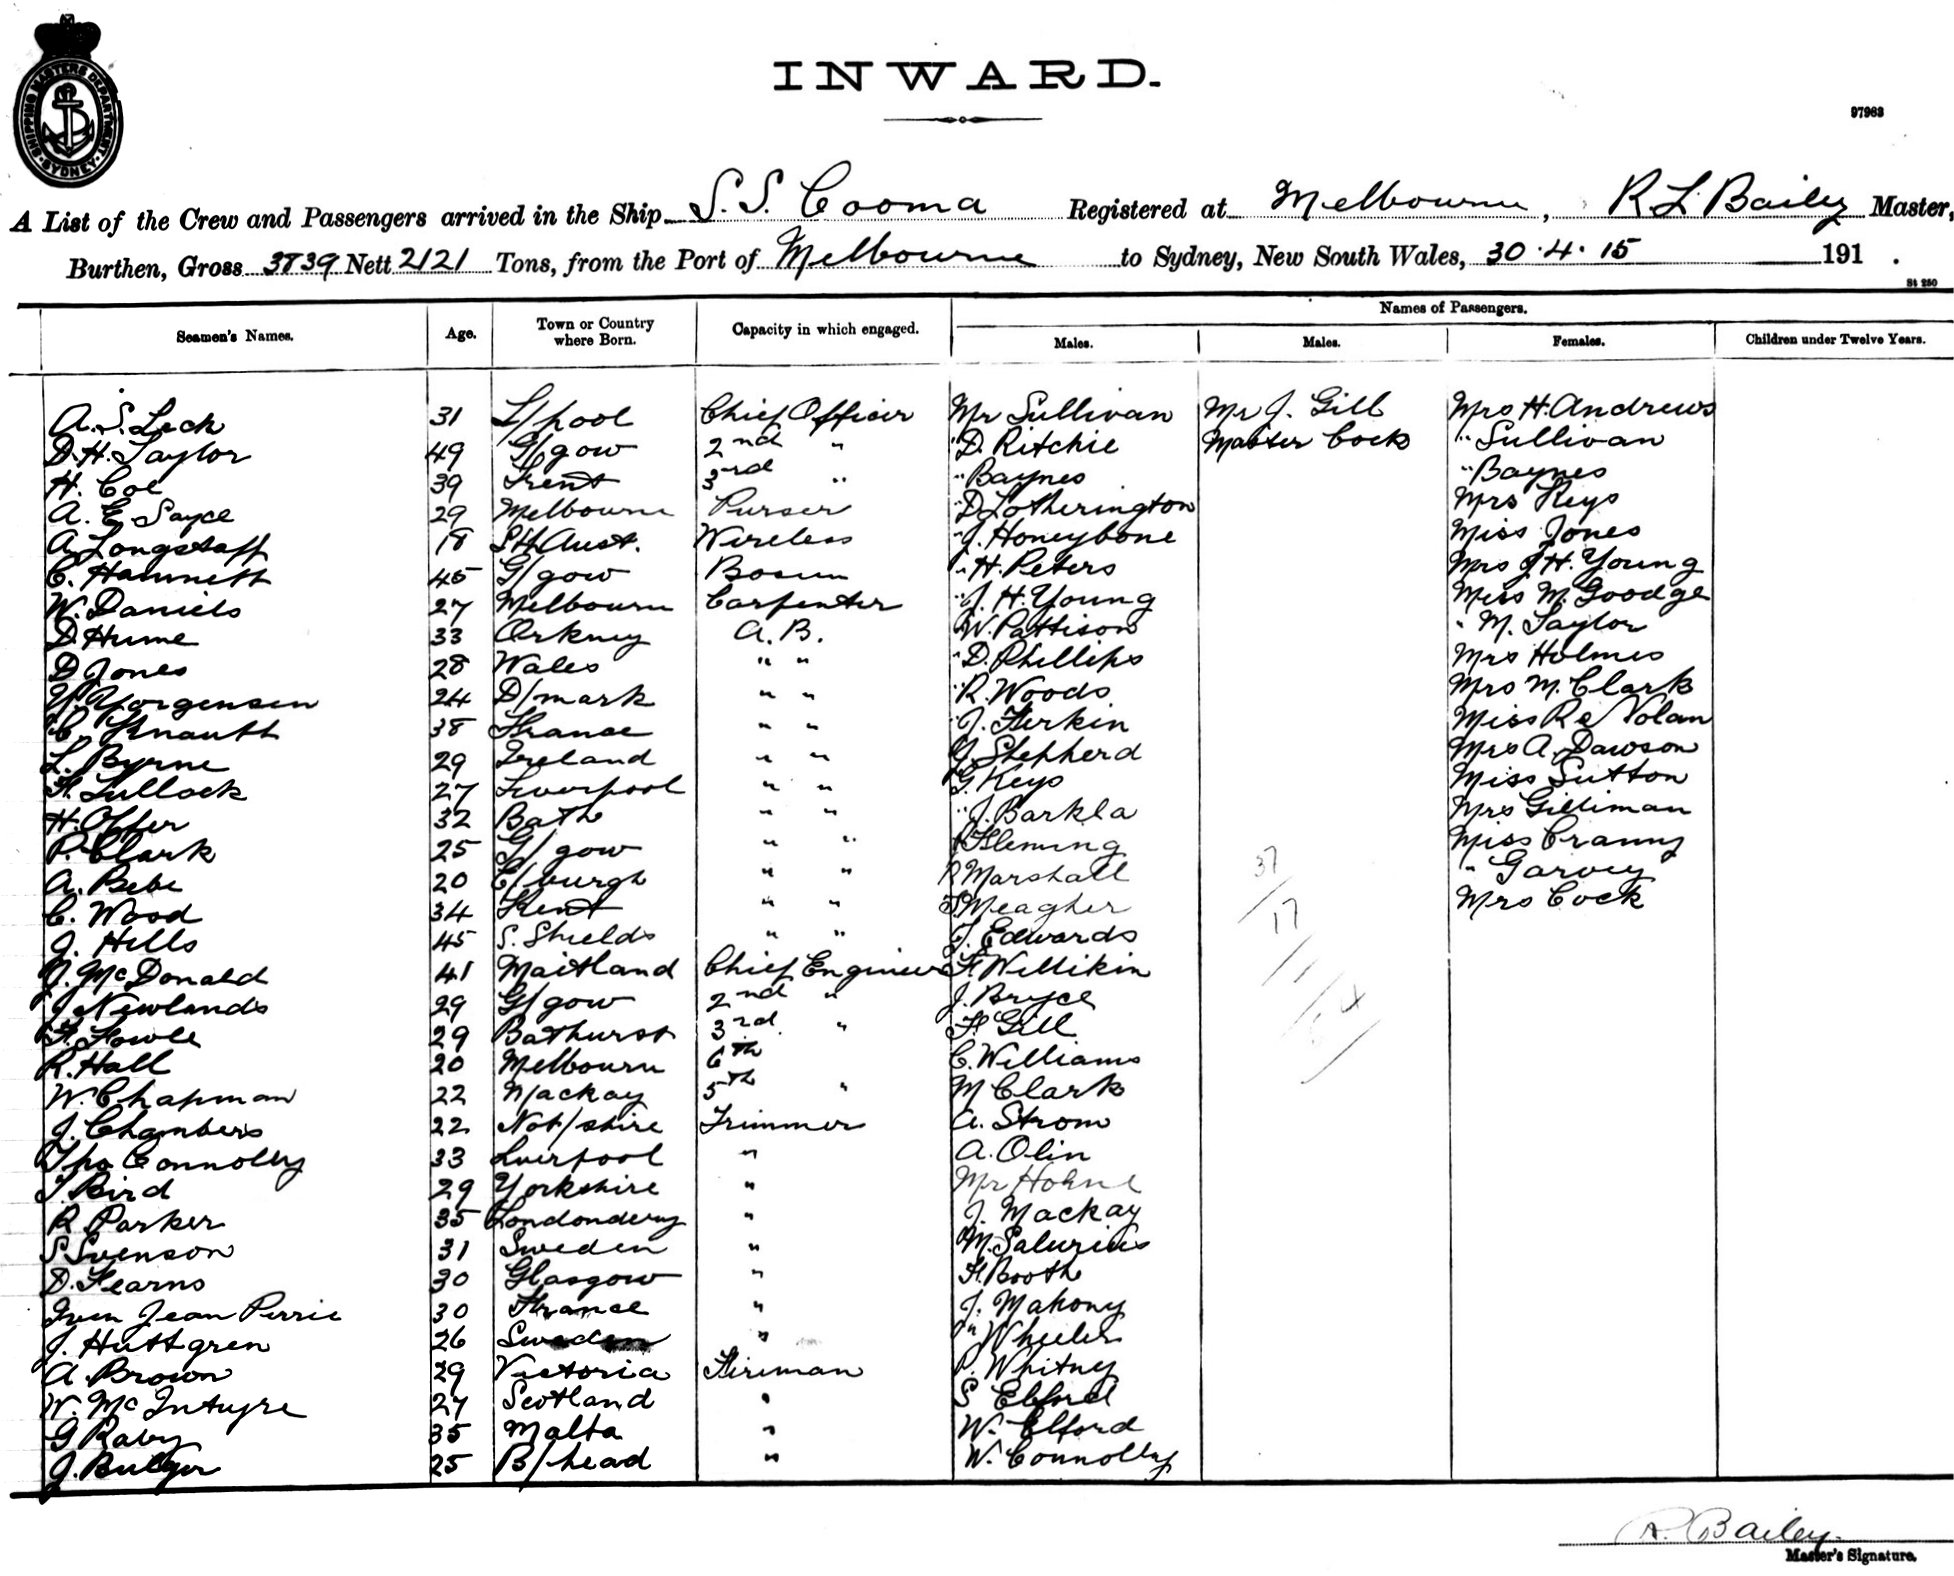 SHIPPING MASTERS DEPARTMENT SYDNEY
INWARD.
97963
A List of the Crew and Passengers arrived in the Ship S. S. Cooma Registered at Melbourne, R L Bailey Master,
Burthen, Gross 3839 Nett 2121 Tons, from the Port of Melbourne to Sydney, New South Wales, 30.4.15 191 .
St 250
Names of Passengers.
Seamen's Names. Age. Town or Country where Born. Capacity in which engaged. Males. Males. Females. Children under Twelve Years.
A. S. Leck 31 L/pool Chief Officer Mr Sullivan Mr J. Gill Mrs H. Andrews
D. H. Taylor 49 G/gow 2nd " " D. Ritchie Master Cock " Sullivan
H. Coe 39 Trent 3rd " " Baynes " Baynes
A. E. Sayce 29 Melbourne Purser " D Lotherington Mrs Keys
A Longstaff 18 Sth Aust. Wireless " J. Honeybone Miss Jones
C. Hamnett 45 G/gow Bosun " H. Peters Mrs J H. Young
W. Daniels 27 Melbourne Carpenter " J. H. Young Miss M. Goodge
D Hume 33 Orkney A. B. " W. Pattison " M. Taylor
D Jones 28 Wales " " " D. Phillips Mrs Holmes
Yorgensen 24 D/mark " " " R. Woods Mrs M. Clark
C. Knauth 38 France " " " J. Ferkin Miss Re Nolan
L. Byrne 29 Ireland " " Shepherd Mrs A. Dawson
F. Tullock 27 Liverpool " " G. Keys Miss Sutton
H. Offer 32 Bath " " " J. Barkla Mrs Gilliman
P. Clark 25 G/gow " " Fleming Miss Cranny
A. Bebe 20 E/burgh " " R Marshall " Garvey
C. Wood 34 Kent " " Meagher Mrs Cock
J. Hills 45 S. Shields " " T. Edwards
J. McDonald 41 Maitland Chief Engineer F. Willikin
J Newlands 29 G/gow 2nd " J. Bryce
F. Fowle 29 Bathurst 3rd " F. Gill
R. Hall 20 Melbourne 6th C. Williams
W. Chapman 22 Mackay 5th " M Clark
J. Chambers 22 Not/shire Trimmer A. Strom
Thos Connolly 33 Liverpool " A. Olin
T. Bird 29 Yorkshire " Mr Hohne
R. Parker 35 Londonderry " J. Mackay
S Svenson 31 Sweden " M. Salurius
D. Fearns 30 Glasgow " F. Booth
Iven Jean Perrie 30 France " J. Mahony
J. Huttgren 26 Sweden " Wheeler
A. Brown 29 Victoria Fireman P. Whitney
W. McIntyre 27 Scotland " S Elford
G Raby 35 Malta " W. Elford
J. Bulger 25 B/head " W. Connolly
37
17
1
R. Bailey
Master's Signature.